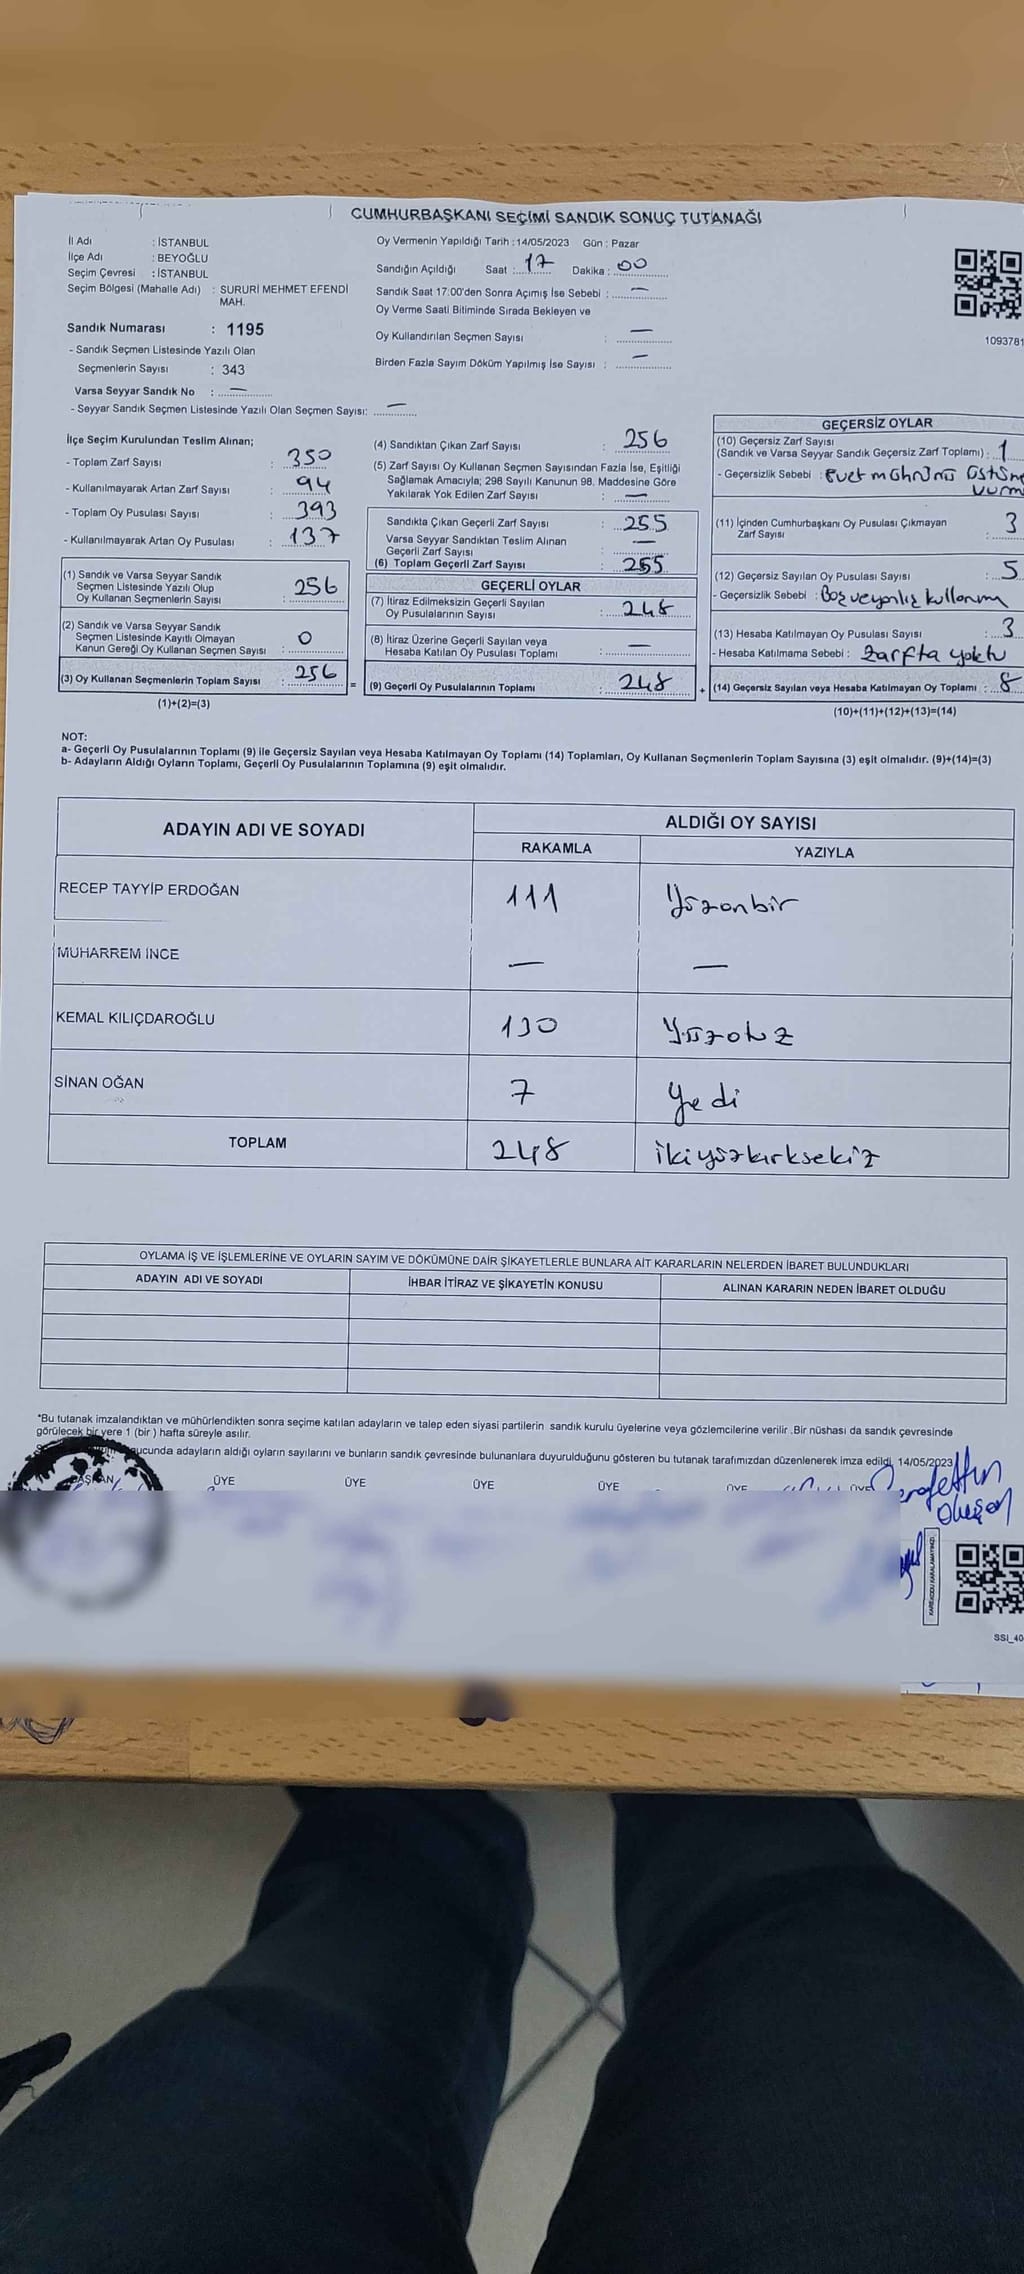 CUMHURBAŞKANI SEÇİMİ SANDIK SONUÇ TUTANAĞI
İl Adı : İSTANBUL
İlçe Adı : BEYOĞLU
Seçim Çevresi : İSTANBUL
Seçim Bölgesi (Mahalle Adı) : SURURİ MEHMET EFENDİ
MAH.
Sandık Numarası : 1195
- Sandık Seçmen Listesinde Yazılı Olan
Seçmenlerin Sayısı : 343
Varsa Seyyar Sandık No : —
- Seyyar Sandık Seçmen Listesinde Yazılı Olan Seçmen Sayısı: —
Oy Vermenin Yapıldığı Tarih : 14/05/2023 Gün : Pazar
Sandığın Açıldığı Saat : 17 Dakika : 00
Sandık Saat 17:00'den Sonra Açımış İse Sebebi : —
Oy Verme Saati Bitiminde Sırada Bekleyen ve
Oy Kullandırılan Seçmen Sayısı : —
Birden Fazla Sayım Döküm Yapılmış İse Sayısı : —
1093781
İlçe Seçim Kurulundan Teslim Alınan;
- Toplam Zarf Sayısı : 350
- Kullanılmayarak Artan Zarf Sayısı : 94
- Toplam Oy Pusulası Sayısı : 393
- Kullanılmayarak Artan Oy Pusulası : 137
(1) Sandık ve Varsa Seyyar Sandık
Seçmen Listesinde Yazılı Olup
Oy Kullanan Seçmenlerin Sayısı : 256
(2) Sandık ve Varsa Seyyar Sandık
Seçmen Listesinde Kayıtlı Olmayan
Kanun Gereği Oy Kullanan Seçmen Sayısı : 0
(3) Oy Kullanan Seçmenlerin Toplam Sayısı : 256 =
(1)+(2)=(3)
(4) Sandıktan Çıkan Zarf Sayısı : 256
(5) Zarf Sayısı Oy Kullanan Seçmen Sayısından Fazla İse, Eşitliği
Sağlamak Amacıyla; 298 Sayılı Kanunun 98. Maddesine Göre
Yakılarak Yok Edilen Zarf Sayısı : —
Sandıkta Çıkan Geçerli Zarf Sayısı : 255
Varsa Seyyar Sandıktan Teslim Alınan
Geçerli Zarf Sayısı : —
(6) Toplam Geçerli Zarf Sayısı : 255
GEÇERLİ OYLAR
(7) İtiraz Edilmeksizin Geçerli Sayılan
Oy Pusulalarının Sayısı : 248
(8) İtiraz Üzerine Geçerli Sayılan veya
Hesaba Katılan Oy Pusulası Toplamı : —
(9) Geçerli Oy Pusulalarının Toplamı : 248 +
GEÇERSİZ OYLAR
(10) Geçersiz Zarf Sayısı
(Sandık ve Varsa Seyyar Sandık Geçersiz Zarf Toplamı) : 1
- Geçersizlik Sebebi : Evet mührünü üstüne
(11) İçinden Cumhurbaşkanı Oy Pusulası Çıkmayan
Zarf Sayısı : 3
(12) Geçersiz Sayılan Oy Pusulası Sayısı : 5
- Geçersizlik Sebebi : Boş ve yanlış kullanım
(13) Hesaba Katılmayan Oy Pusulası Sayısı : 3
- Hesaba Katılmama Sebebi : Zarfta yoktu
(14) Geçersiz Sayılan veya Hesaba Katılmayan Oy Toplamı : 8
(10)+(11)+(12)+(13)=(14)
NOT:
a- Geçerli Oy Pusulalarının Toplamı (9) ile Geçersiz Sayılan veya Hesaba Katılmayan Oy Toplamı (14) Toplamları, Oy Kullanan Seçmenlerin Toplam Sayısına (3) eşit olmalıdır. (9)+(14)=(3)
b- Adayların Aldığı Oyların Toplamı, Geçerli Oy Pusulalarının Toplamına (9) eşit olmalıdır.
ADAYIN ADI VE SOYADI ALDIĞI OY SAYISI
RAKAMLA YAZIYLA
RECEP TAYYİP ERDOĞAN 111 Yüzonbir
MUHARREM İNCE — —
KEMAL KILIÇDAROĞLU 130 Yüzotuz
SİNAN OĞAN 7 Yedi
TOPLAM 248 ikiyüzkırksekiz
OYLAMA İŞ VE İŞLEMLERİNE VE OYLARIN SAYIM VE DÖKÜMÜNE DAİR ŞİKAYETLERLE BUNLARA AİT KARARLARIN NELERDEN İBARET BULUNDUKLARI
ADAYIN ADI VE SOYADI İHBAR İTİRAZ VE ŞİKAYETİN KONUSU ALINAN KARARIN NEDEN İBARET OLDUĞU
*Bu tutanak imzalandıktan ve mühürlendikten sonra seçime katılan adayların ve talep eden siyasi partilerin sandık kurulu üyelerine veya gözlemcilerine verilir .Bir nüshası da sandık çevresinde
görülecek bir yere 1 (bir ) hafta süreyle asılır.
ucunda adayların aldığı oyların sayılarını ve bunların sandık çevresinde bulunanlara duyurulduğunu gösteren bu tutanak tarafımızdan düzenlenerek imza edildi. 14/05/2023
BAŞKAN ÜYE ÜYE ÜYE ÜYE ÜYE ÜYE
KAREKODU KARALAMAYINIZ!
SSI_40